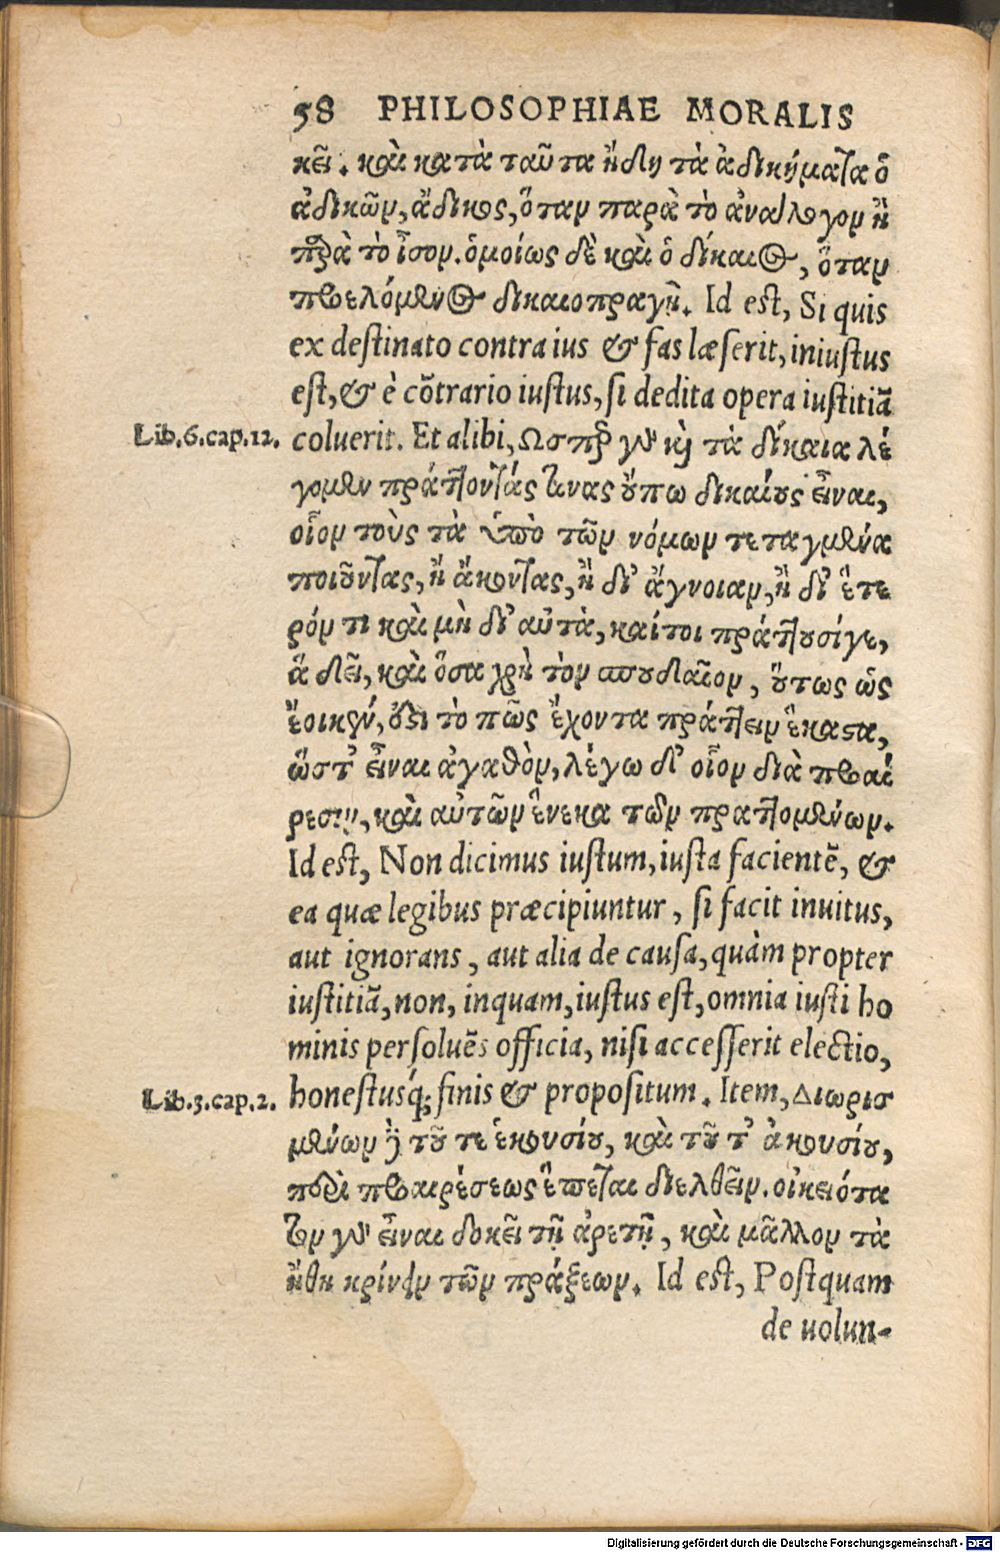 58 PHILOSOPHIAE MORALIS
κεῖ. καὶ κατὰ ταῦτα ἤδη τὰ ἀδικήματα ὁ
ἀδικῶν, ἄδικος, ὅταν παρὰ τὸ ἀνάλογον ᾖ
παρὰ τὸ ἶσον. ὁμοίως δὲ καὶ ὁ δίκαιος, ὅταν
προελόμενος δικαιοπραγῇ. Id est, Si quis
ex destinato contra ius & fas læserit, iniustus
est, & è cōtrario iustus, si dedita opera iustitiā
Lib.6.cap.12. coluerit. Et alibi, Ωσπερ γὰρ καὶ τὰ δίκαια λέ
γομεν πράττοντάς τινας οὔπω δικαίους εἶναι,
οἷον τοὺς τὰ ὑπὸ τῶν νόμων τεταγμένα
ποιοῦντας, ἢ ἄκοντας, ἢ δι' ἄγνοιαν, ἢ δι' ἕτε
ρόν τι καὶ μὴ δι' αὐτὰ, καίτοι πράττουσίγε,
ἃ δεῖ, καὶ ὅσα χρὴ τὸν σπουδαῖον, οὕτως ὡς
ἔοικεν, ὅϛι τὸ πῶς ἔχοντα πράττειν ἕκαϛα,
ὥστ' εἶναι ἀγαθὸν, λέγω δ' οἷον διὰ προαί
ρεσιν, καὶ αὐτῶν ἕνεκα τῶν πραττομένων.
Id est, Non dicimus iustum, iusta facientē, &
ea quæ legibus præcipiuntur, si facit inuitus,
aut ignorans, aut alia de causa, quàm propter
iustitiā, non, inquam, iustus est, omnia iusti ho
minis persoluēs officia, nisi accesserit electio,
Lib.3.cap.2. honestusq́; finis & propositum. Item, Διωρισ
μένων δὲ τοῦ τε ἑκουσίου, καὶ τοῦ τ' ἀκουσίου,
περὶ προαιρέσεως ἕπεται διελθεῖν. οἰκειότα
τον γὰρ εἶναι δοκεῖ τῇ ἀρετῇ, καὶ μᾶλλον τὰ
ἤθη κρίνειν τῶν πράξεων. Id est, Postquam
de uolun-
Digitalisierung gefördert durch die Deutsche Forschungsgemeinschaft - DFG